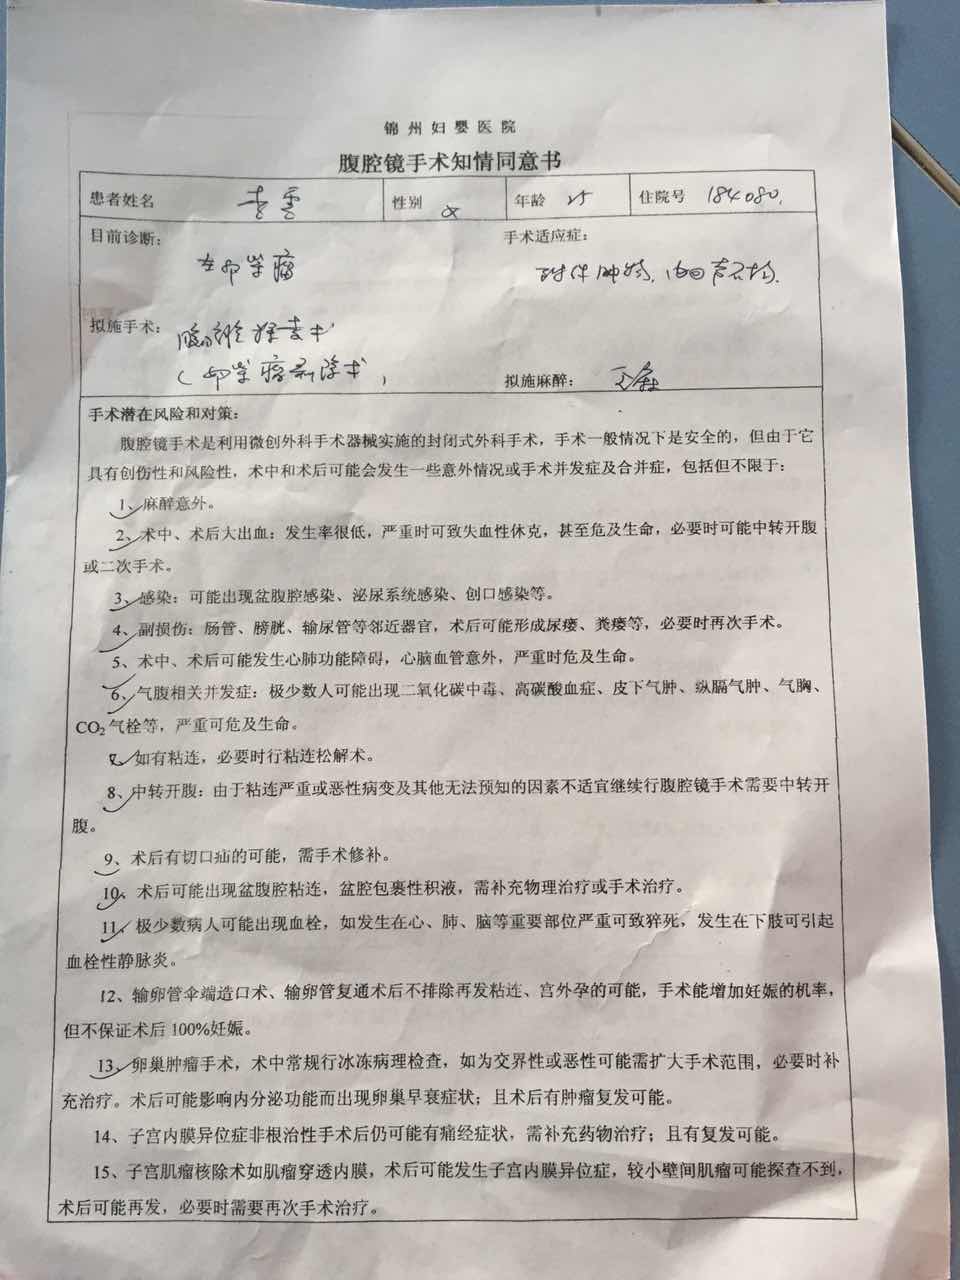 锦州妇婴医院
腹腔镜手术知情同意书
患者姓名 李雪 性别 女 年龄 25 住院号 184080.
目前诊断： 手术适应症：
左卵巢瘤 附件肿物.
拟施手术： 腹腔镜探查术
（卵巢瘤剥除术） 拟施麻醉： 全麻
手术潜在风险和对策：
腹腔镜手术是利用微创外科手术器械实施的封闭式外科手术，手术一般情况下是安全的，但由于它
具有创伤性和风险性，术中和术后可能会发生一些意外情况或手术并发症及合并症，包括但不限于：
1、麻醉意外。
2、术中、术后大出血：发生率很低，严重时可致失血性休克，甚至危及生命，必要时可能中转开腹
或二次手术。
3、感染：可能出现盆腹腔感染、泌尿系统感染、创口感染等。
4、副损伤：肠管、膀胱、输尿管等邻近器官，术后可能形成尿瘘、粪瘘等，必要时再次手术。
5、术中、术后可能发生心肺功能障碍，心脑血管意外，严重时危及生命。
6、气腹相关并发症：极少数人可能出现二氧化碳中毒、高碳酸血症、皮下气肿、纵膈气肿、气胸、
CO₂气栓等，严重可危及生命。
7、如有粘连，必要时行粘连松解术。
8、中转开腹：由于粘连严重或恶性病变及其他无法预知的因素不适宜继续行腹腔镜手术需要中转开
腹。
9、术后有切口疝的可能，需手术修补。
10、术后可能出现盆腹腔粘连，盆腔包裹性积液，需补充物理治疗或手术治疗。
11、极少数病人可能出现血栓，如发生在心、肺、脑等重要部位严重可致猝死，发生在下肢可引起
血栓性静脉炎。
12、输卵管伞端造口术、输卵管复通术后不排除再发粘连、宫外孕的可能，手术能增加妊娠的机率，
但不保证术后100%妊娠。
13、卵巢肿瘤手术，术中常规行冰冻病理检查，如为交界性或恶性可能需扩大手术范围，必要时补
充治疗。术后可能影响内分泌功能而出现卵巢早衰症状；且术后有肿瘤复发可能。
14、子宫内膜异位症非根治性手术后仍可能有痛经症状，需补充药物治疗；且有复发可能。
15、子宫肌瘤核除术如肌瘤穿透内膜，术后可能发生子宫内膜异位症，较小壁间肌瘤可能探查不到，
术后可能再发，必要时需要再次手术治疗。